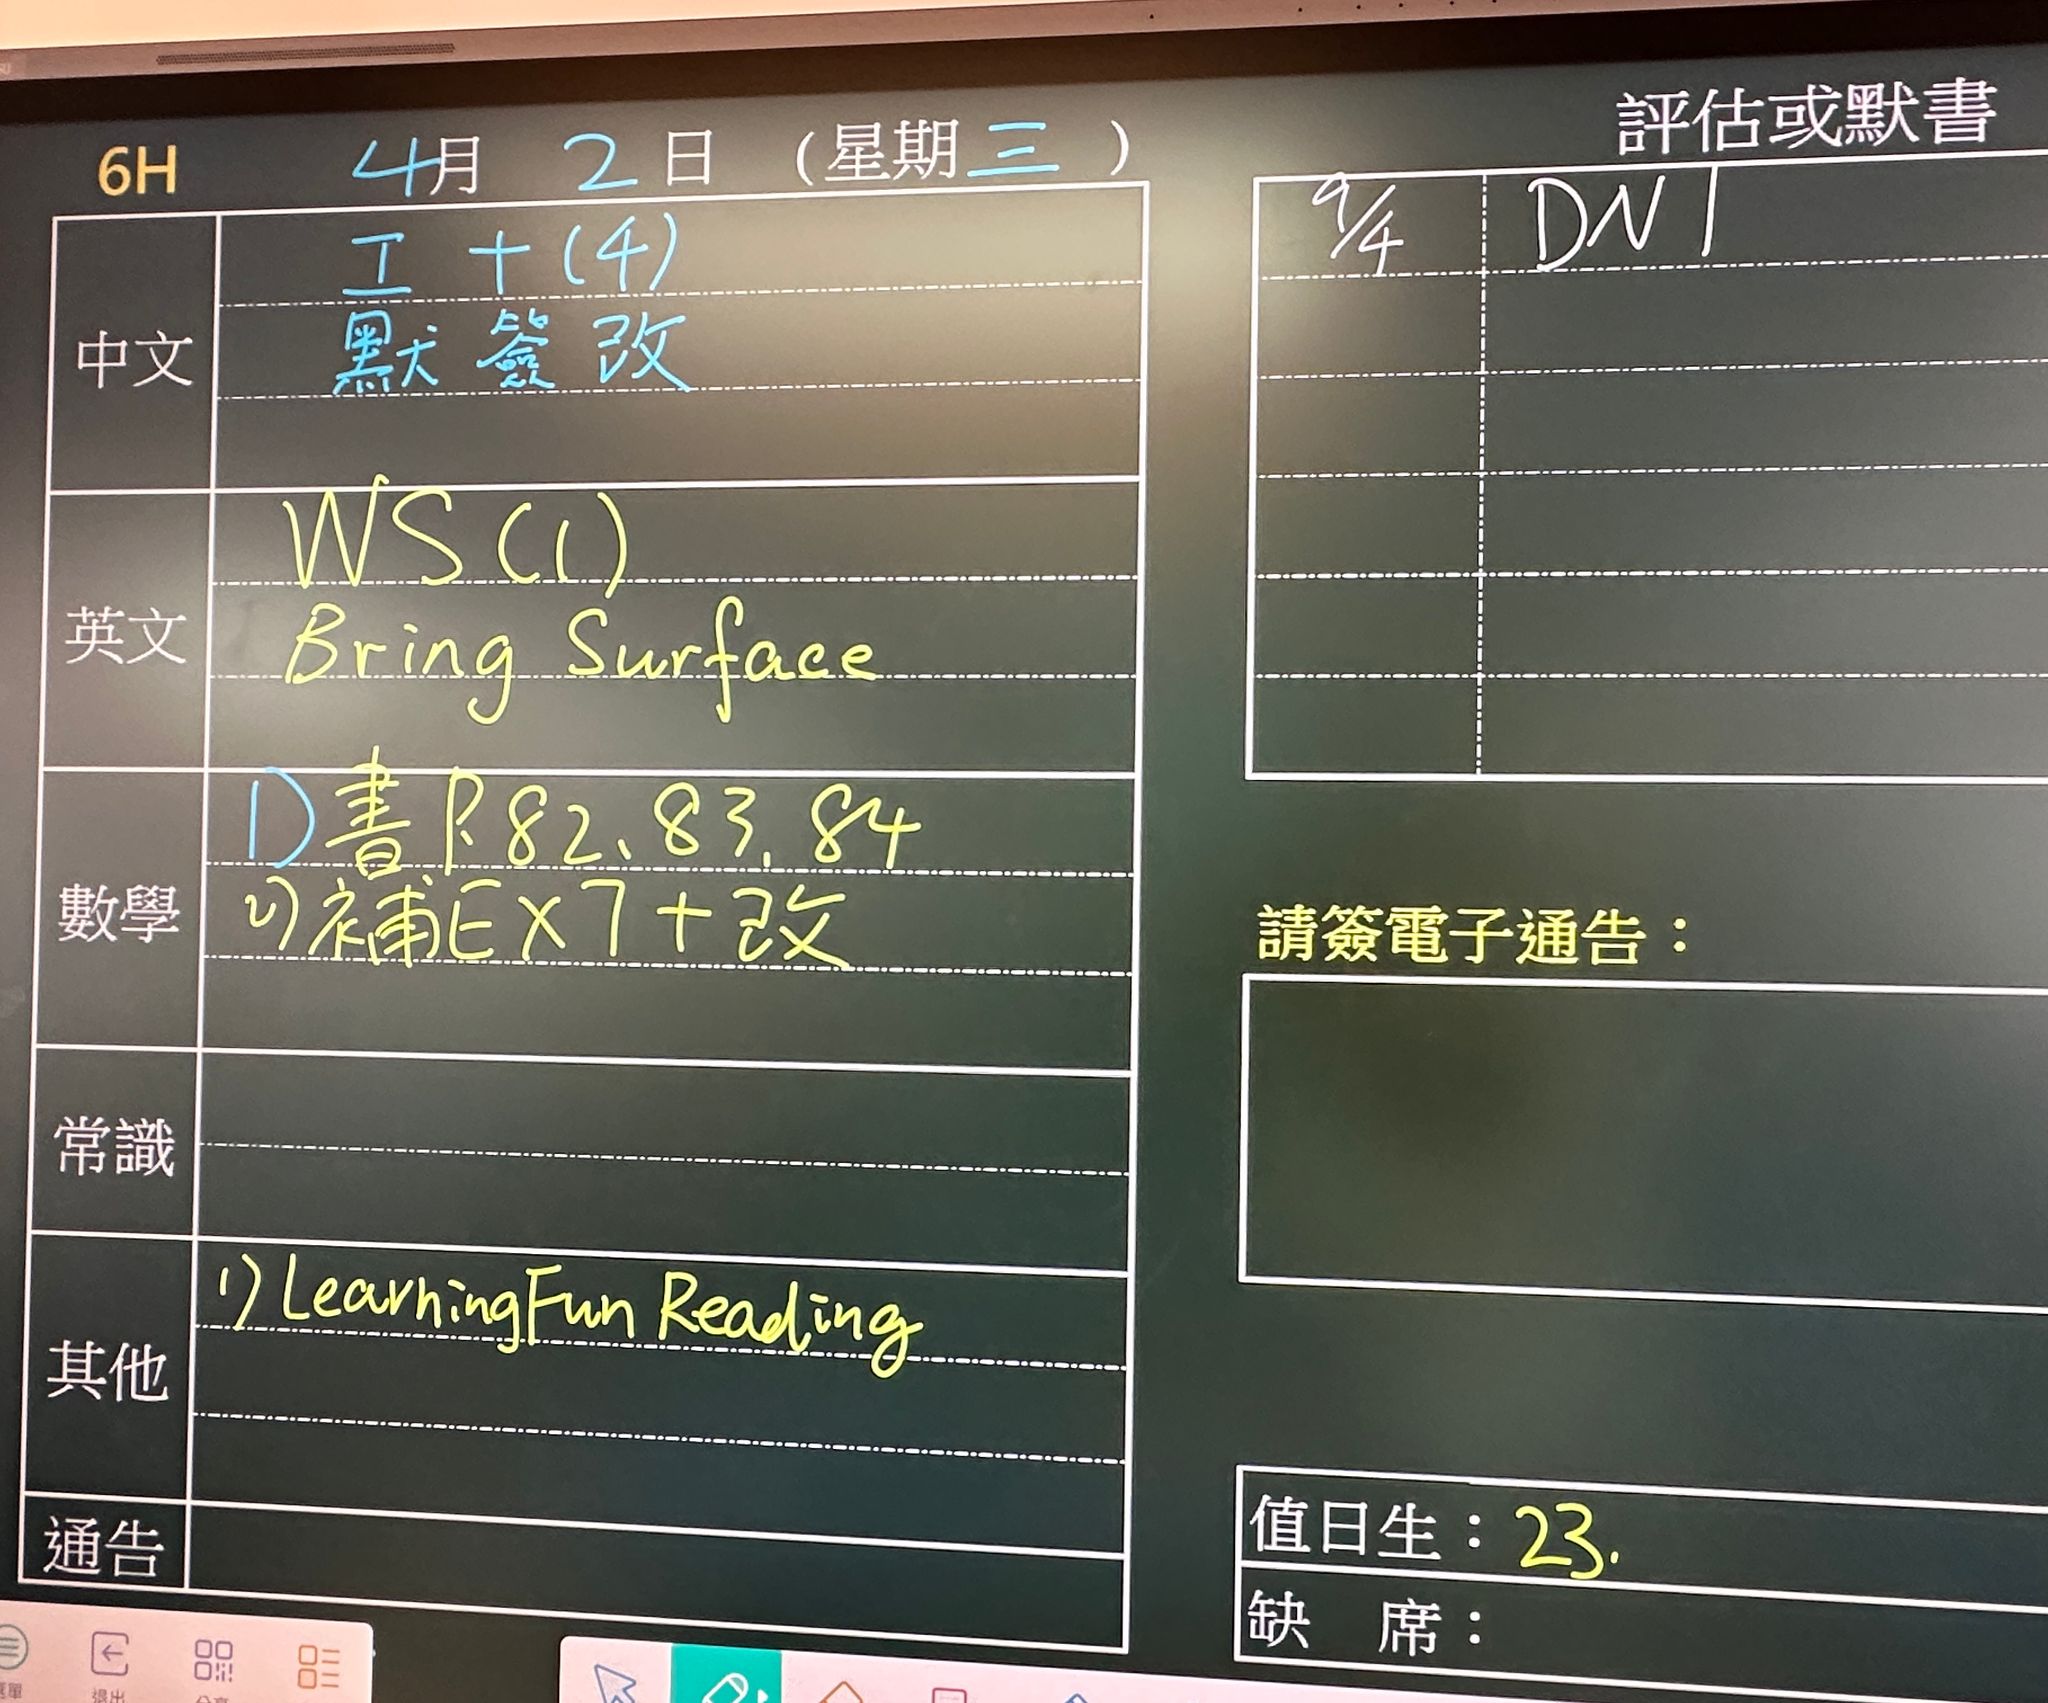 6H 4月 2日 (星期三)
中文
工十(4)
默簽改
英文
WS(1)
Bring Surface
數學
1)書P.82、83、84
2)補Ex7+改
常識
其他
1) Learning Fun Reading
通告
評估或默書
9/4 DN1
請簽電子通告：
值日生：23.
缺席：
退出